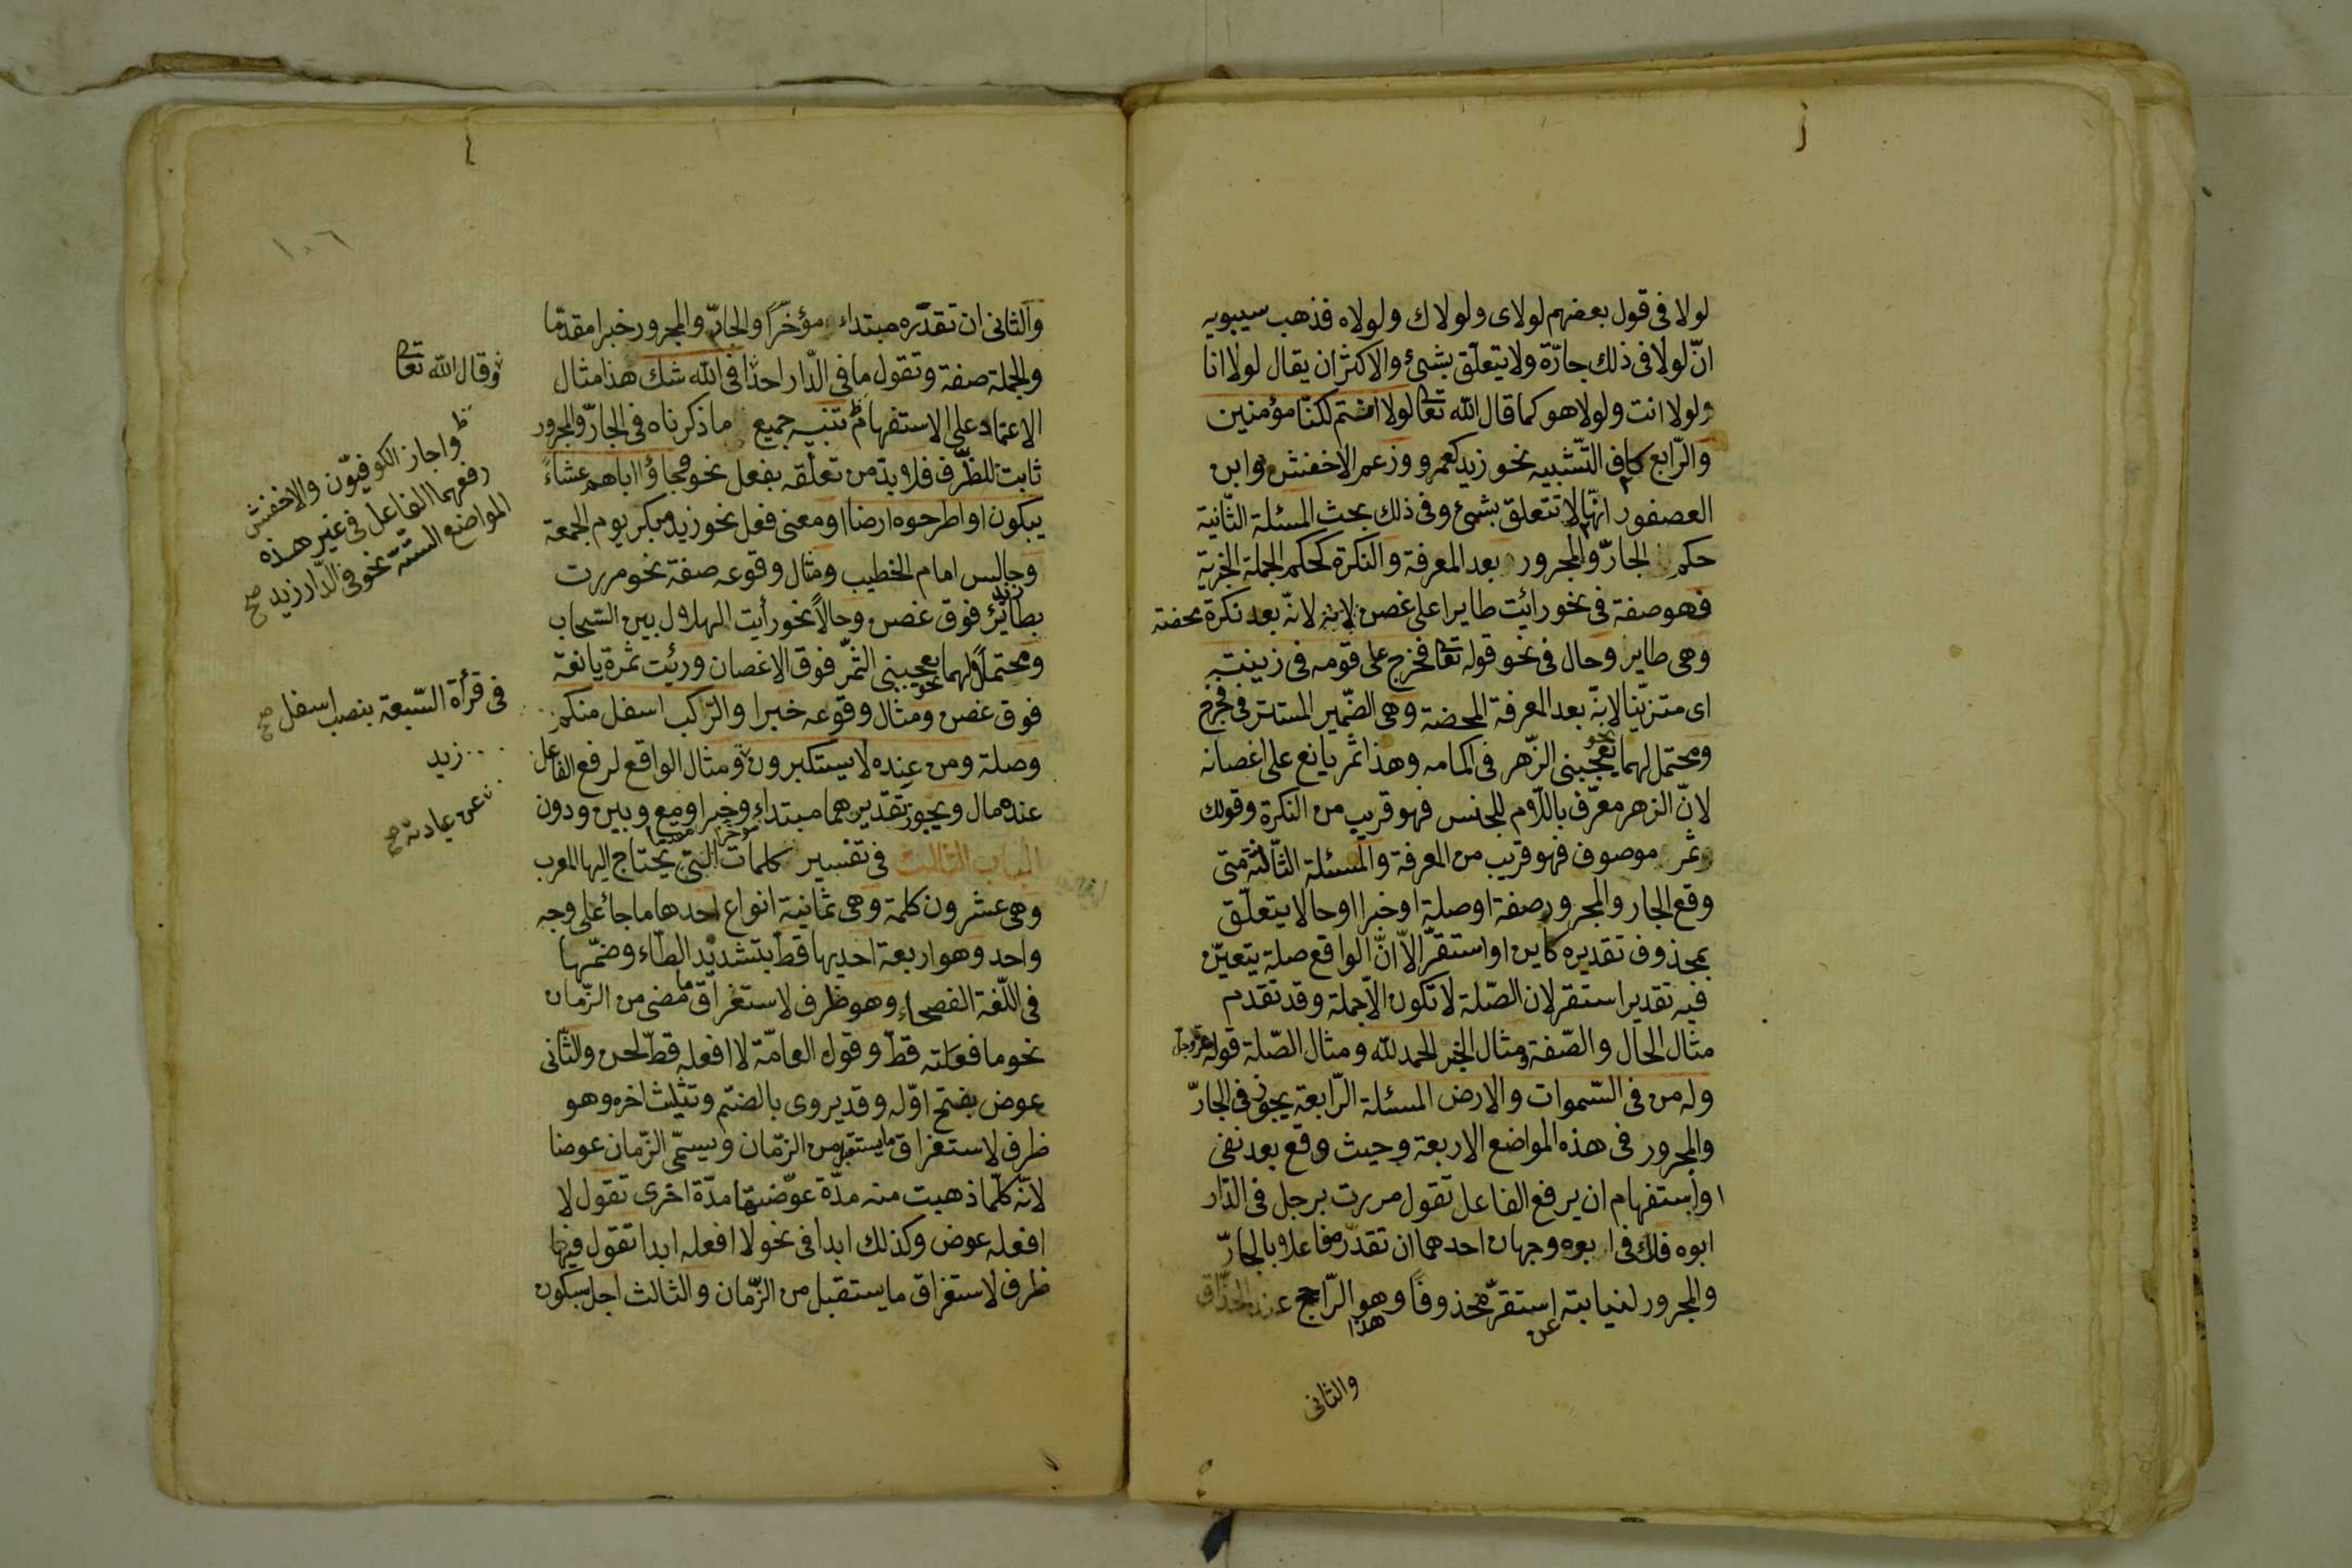 لولا فى قول بعضهم لولاى ولولاك ولولاه فذهب سيبويه
انّ لولا فى ذلك جارّة ولا يتعلّق بشئ والاكثر ان يقال لولا انا
ولولا انت ولولا هو كما قال الله تعالى لولا انتم لكنّا مؤمنين
والرّابع كاف التّشبيه نحو زيد كعمرو وزعم الاخفش وابن
العصفور انّها لا تتعلق بشئ وفى ذلك بحث المسئلة الثّانية
حكم الجارّ والمجرور بعد المعرفة والنكرة كحكم الجملة الخبرية
فهو صفة فى نحو رائت طايرا على غصن لانه بعد نكرة محضة
وهى طاير وحال فى نحو قوله تعالى فخرج على قومه فى زينته
اى متزيّنا لانّه بعد المعرفة المحضة وهى الضّمير المستتر فى فخرج
ومحتمل لهما نحو يعجبنى الزّهر فى اكمامه وهذا ثمر يانع على اغصانه
لانّ الزهر معرّف باللّام للجنس فهو قريب من النكرة وقولك
ثمر موصوف فهو قريب من المعرفة والمسئلة الثّالثة متى
وقع الجار والمجرور صفة او صلة او خبرا او حالا يتعلّق
بمحذوف تقديره كاين او استقرّ الاّ انّ الواقع صلة يتعيّن
فيه تقدير استقر لان الصّلة لا تكون الاّ جملة وقد تقدم
مثال الحال والصّفة ومثال الخبر الحمد لله ومثال الصّلة قوله عزّ وجلّ
وله من فى السّموات والارض المسئلة الرّابعة يجوز فى الجارّ
والمجرور فى هذه المواضع الاربعة وحيث وقع بعد نفى
او استفهام ان يرفع الفاعل تقول مررت برجل فى الدّار
ابوه فلك فى ابوه وجهان احدهما ان تقدّره فاعلا بالجارّ
والمجرور لنيابته عن استقرّ محذوفًا وهو الرّاجح عند الحذّاق
هذا
والثانى
والثانى ان تقدّره مبتداء مؤخّرًا والجارّ والمجرور خبرا مقدّما
والجملة صفة وتقول ما فى الدّار احد افى الله شك هذا مثال
الاعتماد على الاستفهام تنبيه جميع ما ذكرناه فى الجارّ والمجرور
ثابت للظّرف فلا بدّ من تعلّقه بفعل نحو وجاؤا اباهم عشاءً
يبكون او اطرحوه ارضا او معنى فعل نحو زيد مبكر يوم الجمعة
وجالس امام الخطيب ومثال وقوعه صفة نحو مررت
بطائرٍ فوق غصن وحالاً نحو رأيت الهلال بين السّحاب
ومحتملاً لهما نحو يعجبنى الثمّر فوق الاغصان ورئيت ثمرة يانعة
فوق غصن ومثال وقوعه خبرا والرّكب اسفل منكم
وصلة ومن عنده لا يستكبرون ومثال الواقع لرفع الفاعل
عنده مال ويجوز تقديرهما مبتداء مؤخرا وخبرا مقدما ومع وبين ودون
الباب الثالث فى تفسير كلمات التى يحتاج اليها المعرب
وهى عشرون كلمة وهى ثمانية انواع احدها ما جاء على وجه
واحد وهو اربعة احديها قطّ بتشديد الطّاء وضمّها
فى اللّغة الفصحاء وهو ظرف لاستغراق ما مضى من الزّمان
نحو ما فعلته قطّ وقول العامّة لا افعله قطّ لحن والثّانى
عوض بفتح اوّله وقد يروى بالضمّ وتثليث اخره وهو
ظرف لاستغراق ما يستقبل من الزّمان ويسمّى الزّمان عوضا
لانّه كلّما ذهبت منه مدّة عوّضتها مدّة اخرى تقول لا
افعله عوض وكذلك ابدا فى نحو لا افعله ابدا تقول فيها
ظرف لاستغراق ما يستقبل من الزّمان والثالث اجل بسكون
١٠٦
وقال الله تعالى
واجاز الكوفيّون والاخفش
رفعهما الفاعل فى غير هذه
المواضع الستّة نحو فى الدّار زيد صح
فى قرأة السّبعة بنصب اسفل صح
زيد
عن عبادته صح